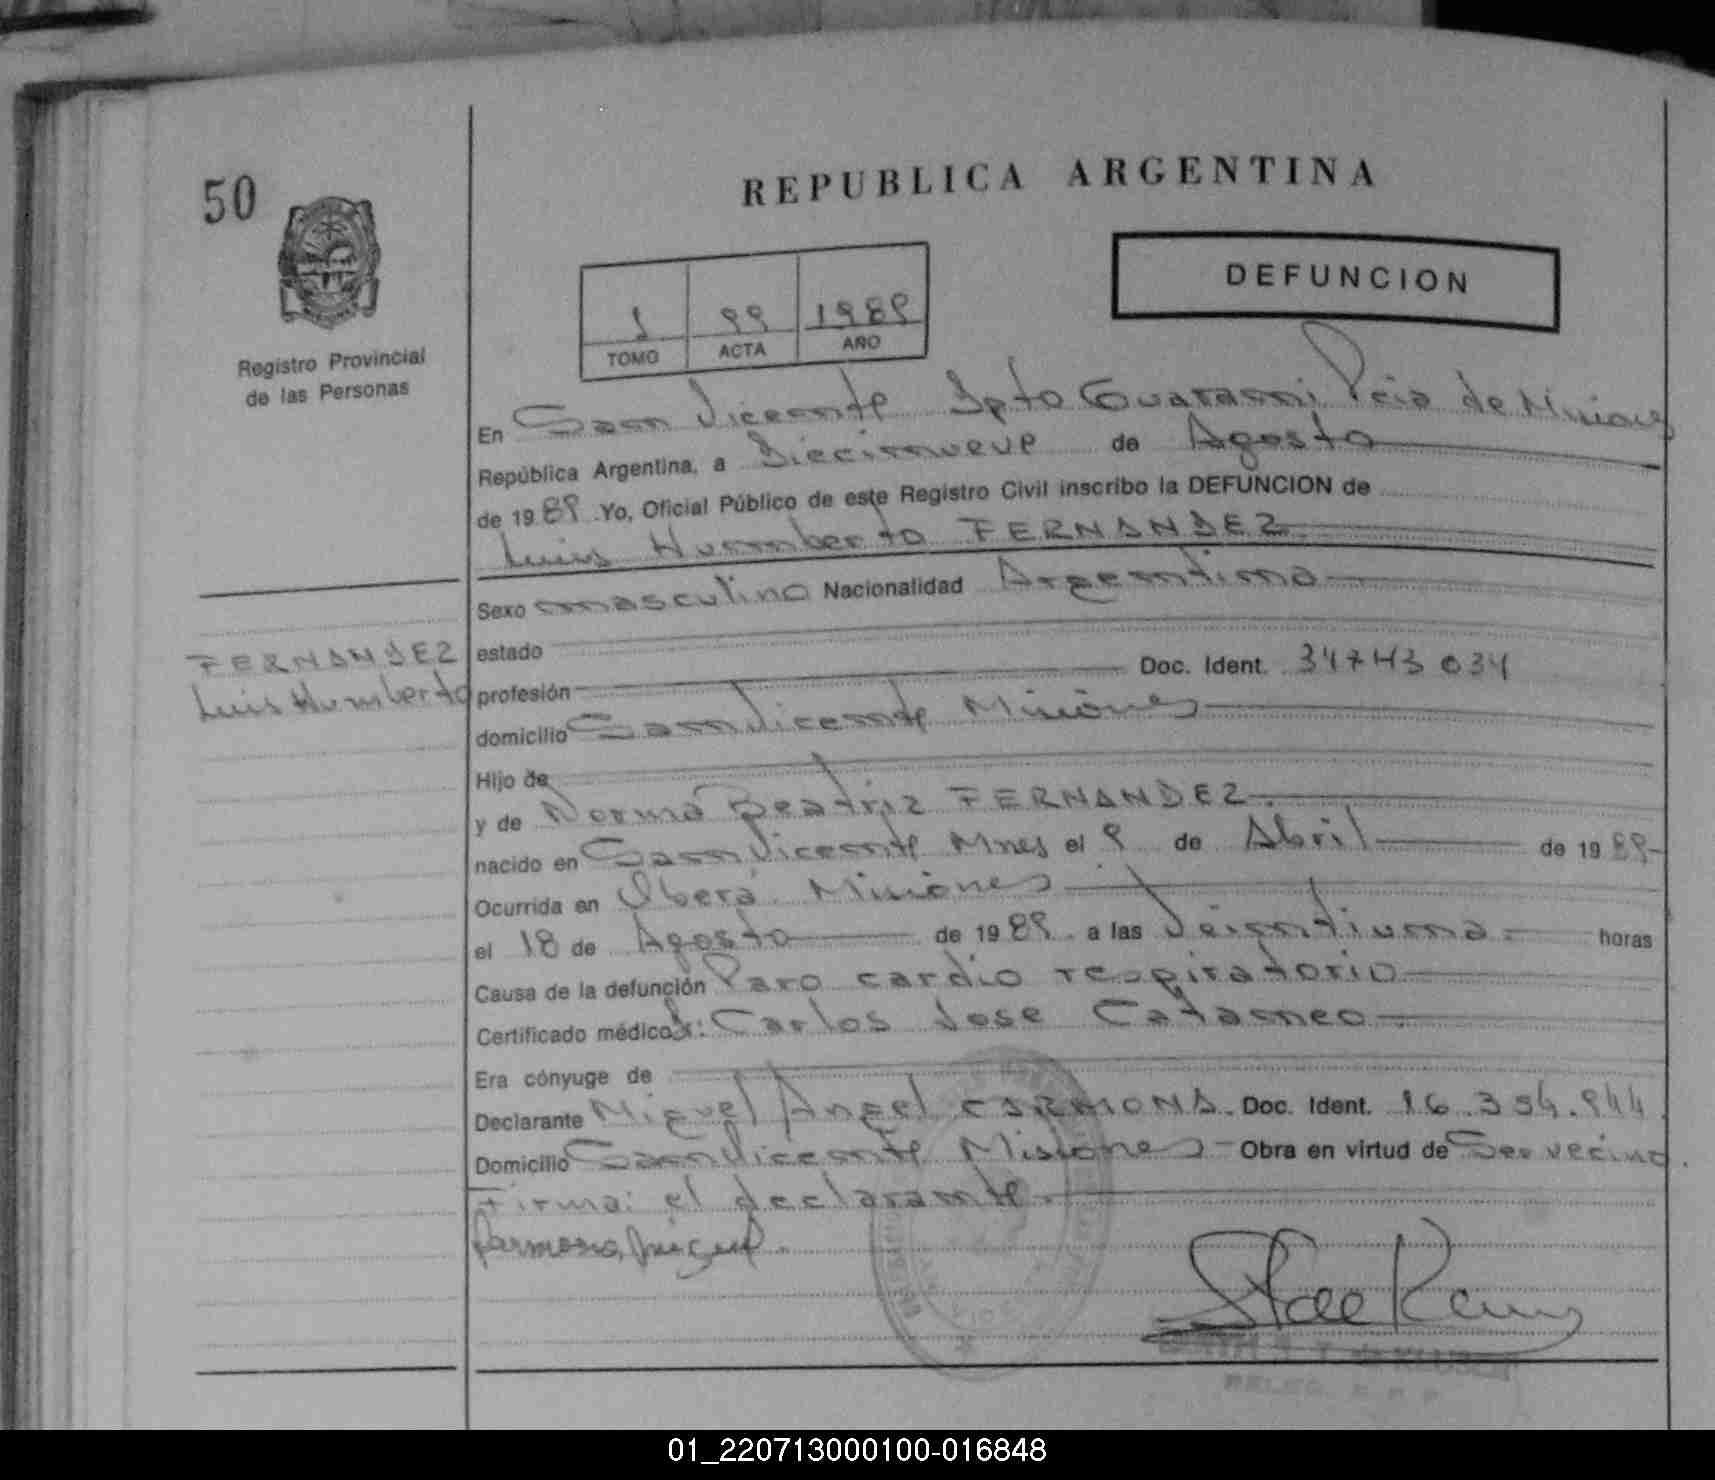 50
REPUBLICA ARGENTINA
DEFUNCION
1 99 1989
TOMO ACTA AÑO
Registro Provincial
de las Personas
En San Vicente Dpto Guarani Pcia de Misiones
República Argentina, a Diecinueve de Agosto
de 1989 Yo, Oficial Público de este Registro Civil inscribo la DEFUNCION de
Luis Humberto FERNANDEZ
Sexo masculino Nacionalidad Argentina
FERNANDEZ
Luis Humberto
estado
profesión Doc. Ident. 34743034
domicilio San Vicente Misiones
Hijo de
y de Norma Beatriz FERNANDEZ.
nacido en San Vicente Mnes el 9 de Abril de 1989
Ocurrida en Oberá Misiones
el 18 de Agosto de 1989 a las Veintiuna horas
Causa de la defunción Paro cardio respiratorio
Certificado médico Dr: Carlos Jose Cataneo
Era cónyuge de
Declarante Miguel Angel CARMONA. Doc. Ident. 16.354.944
Domicilio San Vicente Misiones Obra en virtud de Ser vecino.
Firma: el declarante.
Carmona, Miguel.
01_220713000100-016848